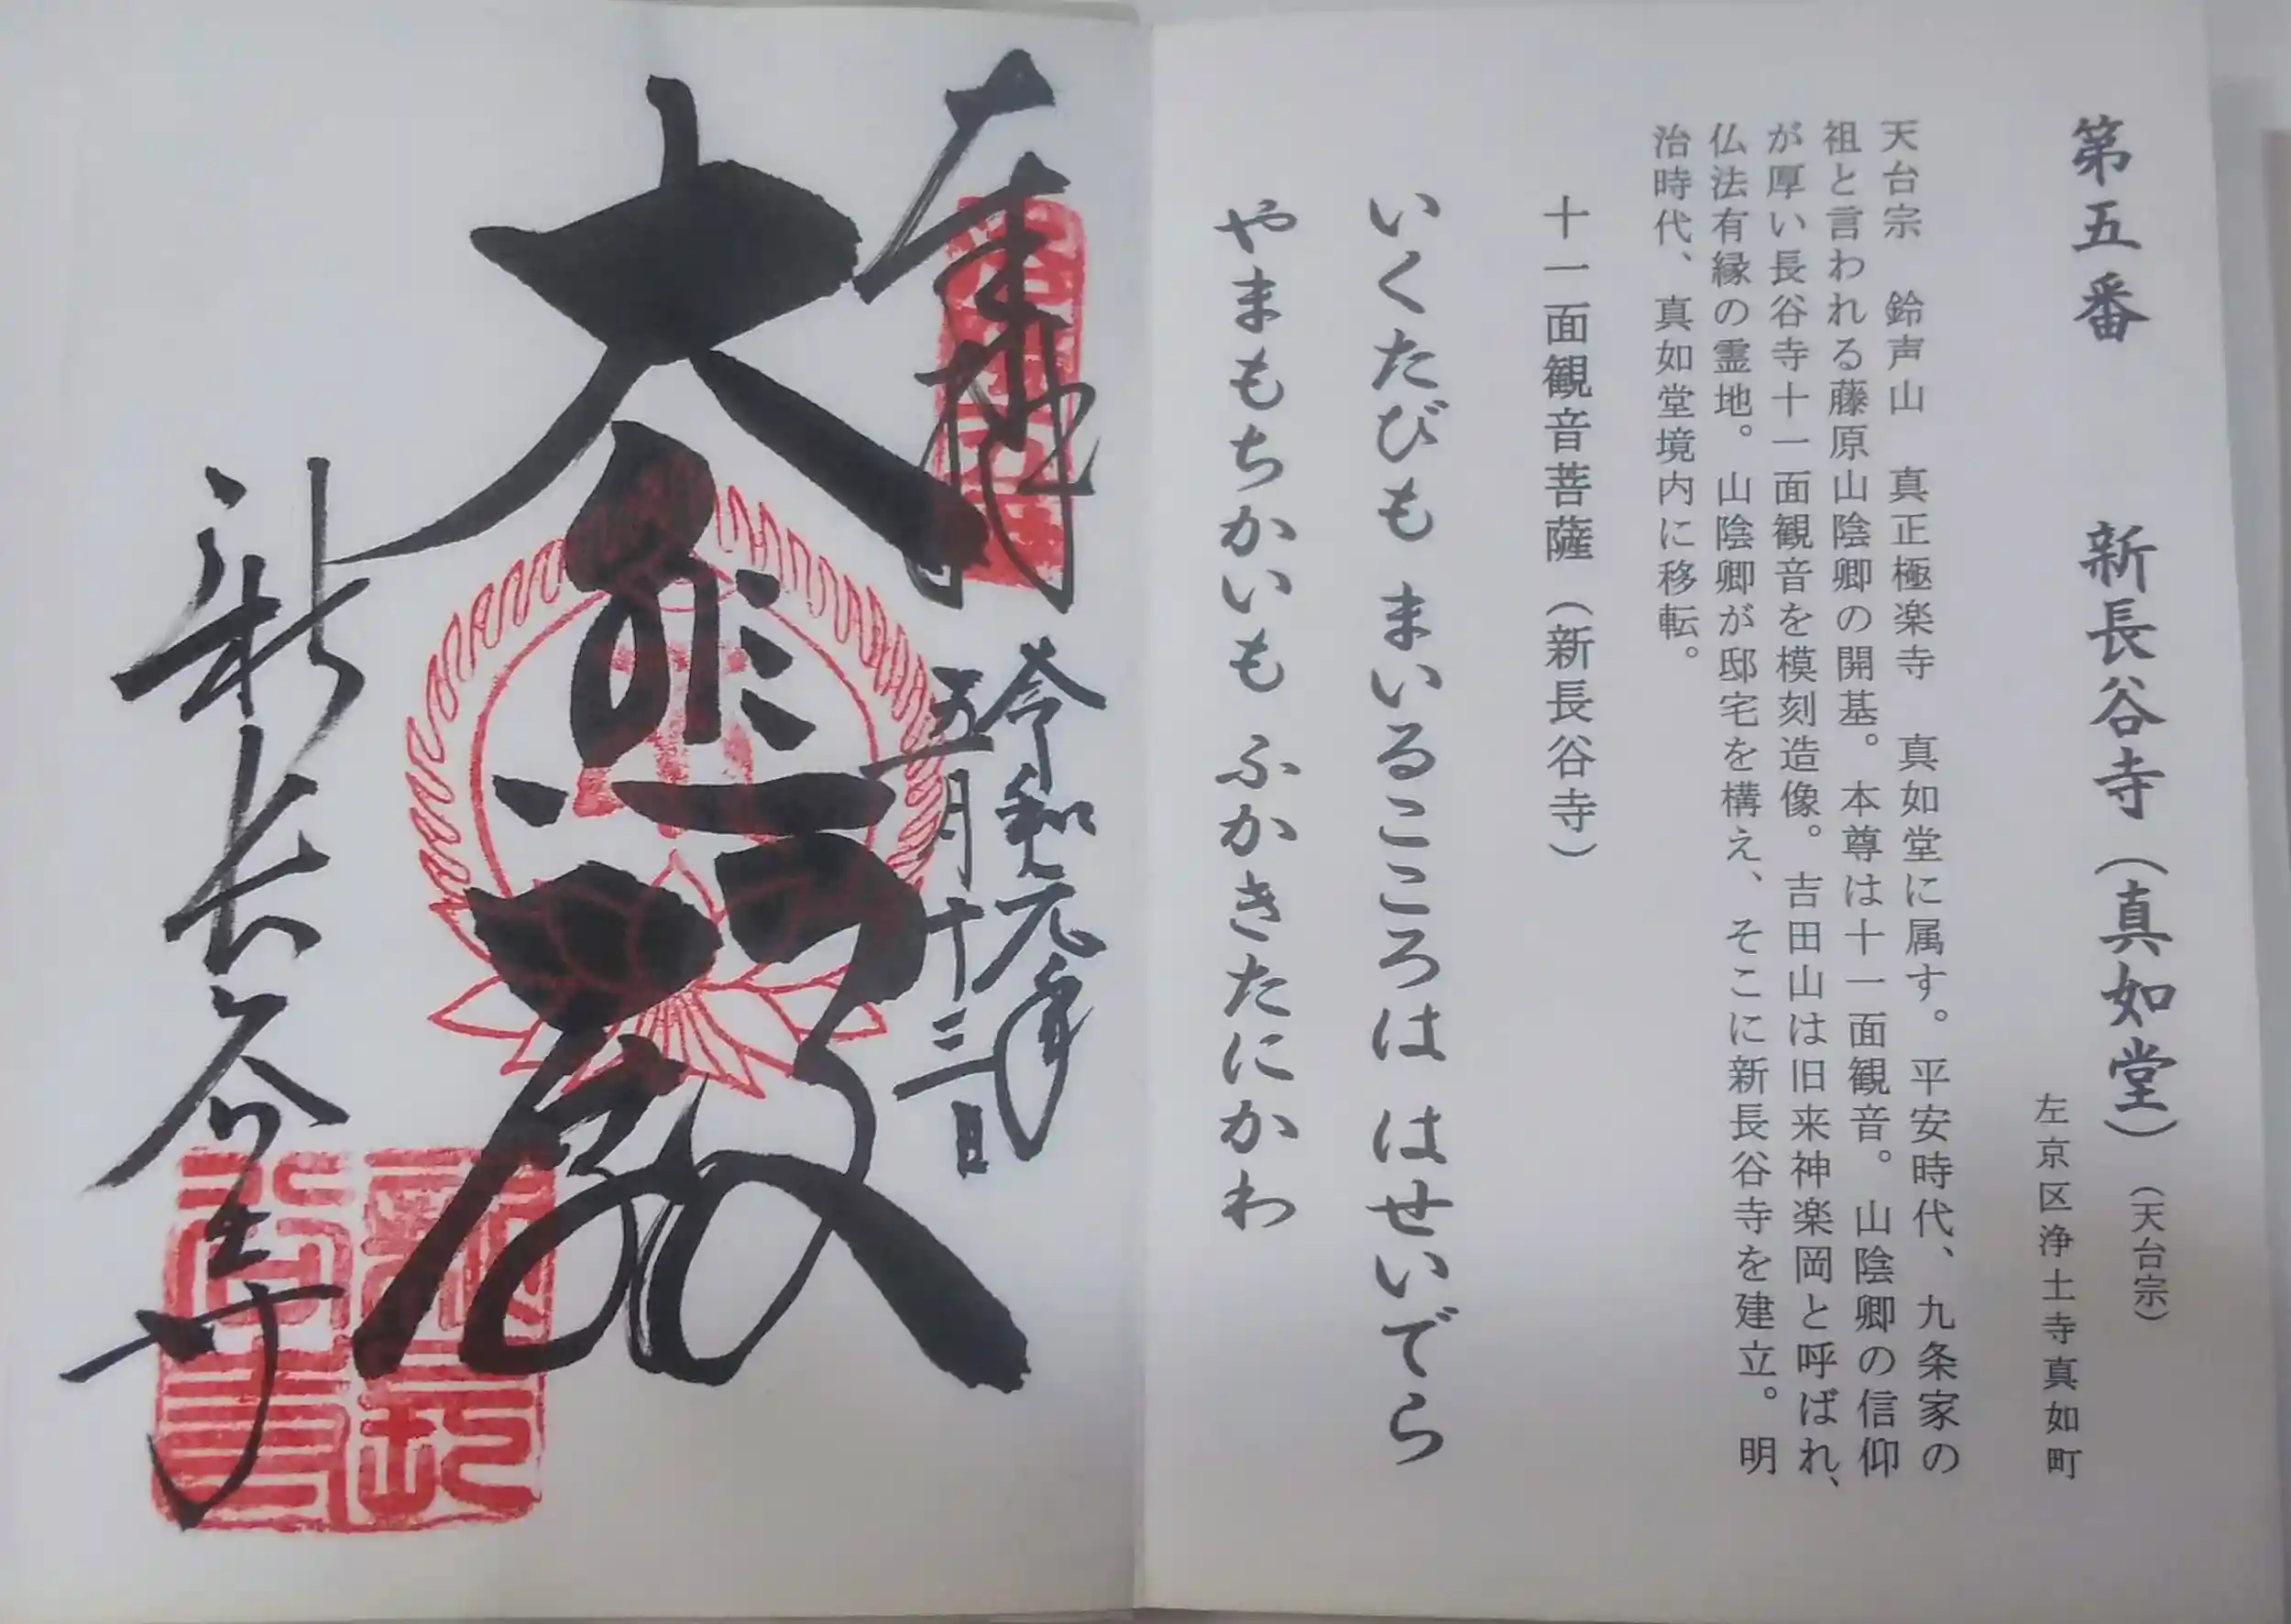 第五番 新長谷寺（真如堂）（天台宗）
左京区浄土寺真如町
天台宗 鈴声山 真正極楽寺 真如堂に属す。平安時代、九条家の
祖と言われる藤原山陰卿の開基。本尊は十一面観音。山陰卿の信仰
が厚い長谷寺十一面観音を模刻造像。吉田山は旧来神楽岡と呼ばれ、
仏法有縁の霊地。山陰卿が邸宅を構え、そこに新長谷寺を建立。明
治時代、真如堂境内に移転。
十一面観音菩薩（新長谷寺）
いくたびも まいるこころは はせいでら
やまもちかいも ふかきたにかわ
奉拝
令和元年
五月十三日
大悲殿
新長谷寺